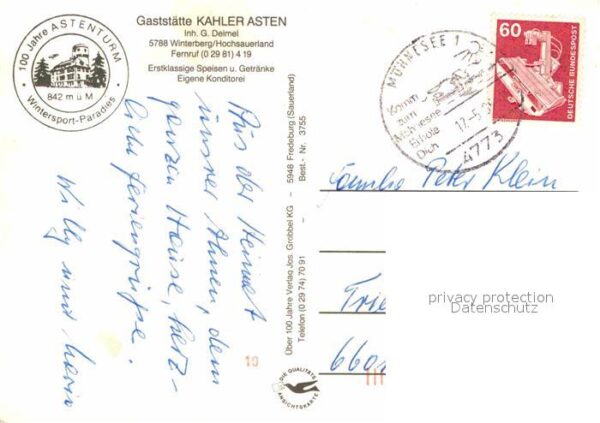 100 Jahre ASTENTURM
842 m ü M
Wintersport-Paradies
Gaststätte KAHLER ASTEN
Inh. G. Deimel
5788 Winterberg/Hochsauerland
Fernruf (0 29 81) 4 19
Erstklassige Speisen u. Getränke
Eigene Konditorei
Aus der Heimat
unsrer Ahnen, dem
ganzen Hause, herz-
liche Feriengrüße.
Willy und Maria
Über 100 Jahre Verlag Jos. Grobbel KG - 5948 Fredeburg (Sauerland)
Telefon (0 29 74) 70 91 - Best.- Nr. 3755
DIE QUALITÄTS
ANSICHTSKARTE
19
MÖHNESEE 1
Komm
zum
Möhnesee
Erhole
Dich
17.-5.
4773
60
DEUTSCHE BUNDESPOST
Familie Peter Klein
Trie
6601
privacy protection
www.